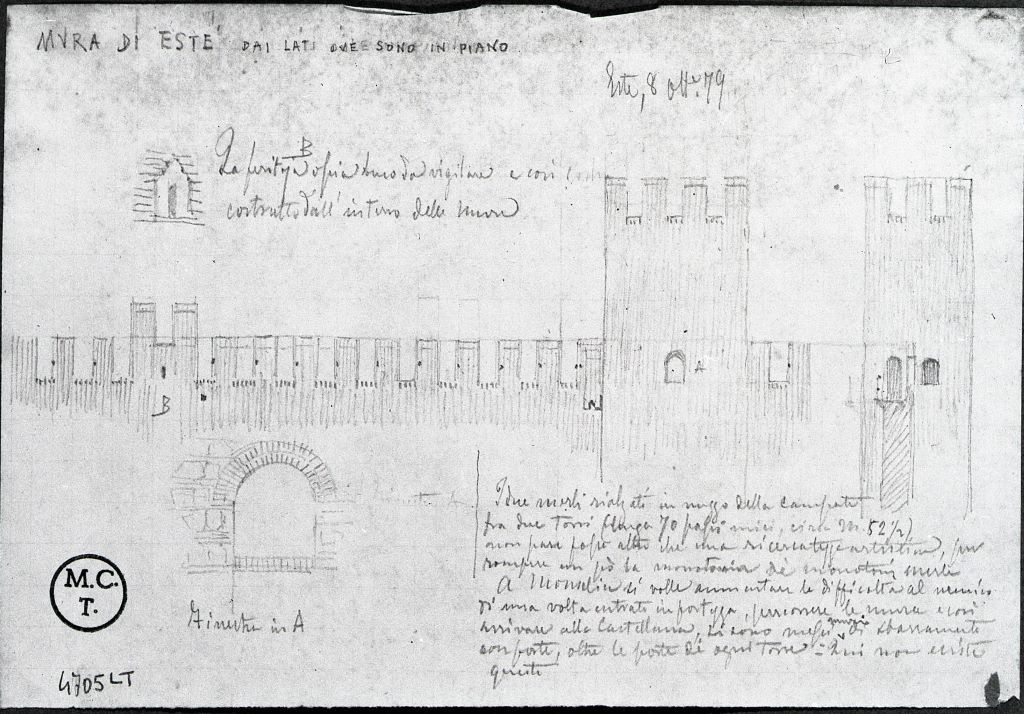 MVRA DI ESTE DAI LATI OVE SONO IN PIANO
Este, 8 ott. 79
B
La feritoja ossia buco da vigilare e così
costrutto dall' interno delle mura
A
B
I due merli rialzati in mezzo della campata
fra due torri (lunga 70 passi miei, circa M. 52 1/2)
non pare fosse altro che una ricercatezza artistica, per
rompere un pò la monotonia dei monotoni merli
A Monselice si volle aumentare le difficoltà al nemico
di una volta entrati in fortezza, percorrere le mura e così
arrivare alla Castellana, vi sono messi muri di sbarramento
con porte, oltre le porte di ogni torre - Qui non esiste
questo
Finestra in A
M.C.
T.
4705 LT